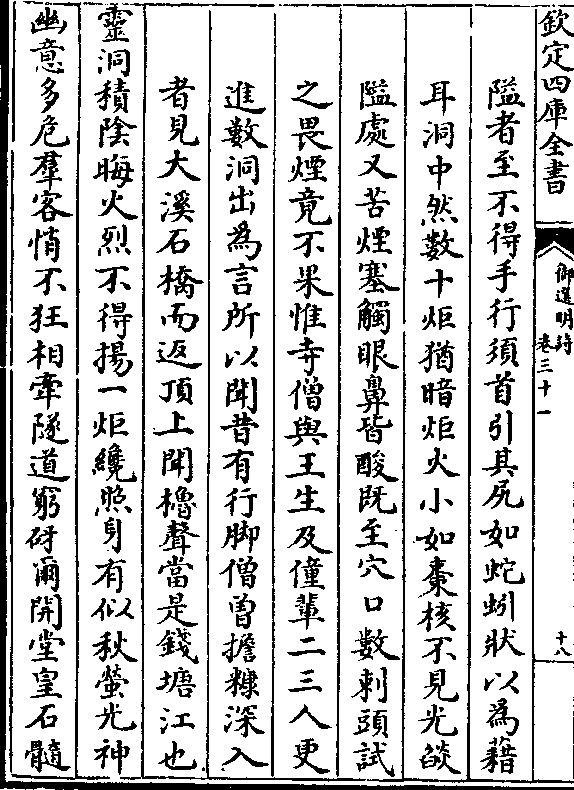 欽定四庫全書
御選明詩
卷三十一
十八
隘者至不得手行須首引其尻如蛇蚓狀以為藉
耳洞中然數十炬猶暗炬火小如棗核不見光燄
隘處又苦煙塞觸眼鼻皆酸既至穴口數刺頭試
之畏煙竟不果惟寺僧與王生及僮輩二三人更
進數洞出為言所以聞昔有行脚僧曽擔糠深入
者見大溪石橋而返頂上聞櫓聲當是錢塘江也
靈洞積陰晦火烈不得揚一炬纔照身有似秋螢光神
幽意多危羣客悄不狂相牽隧道窮砑爾開堂皇石髓